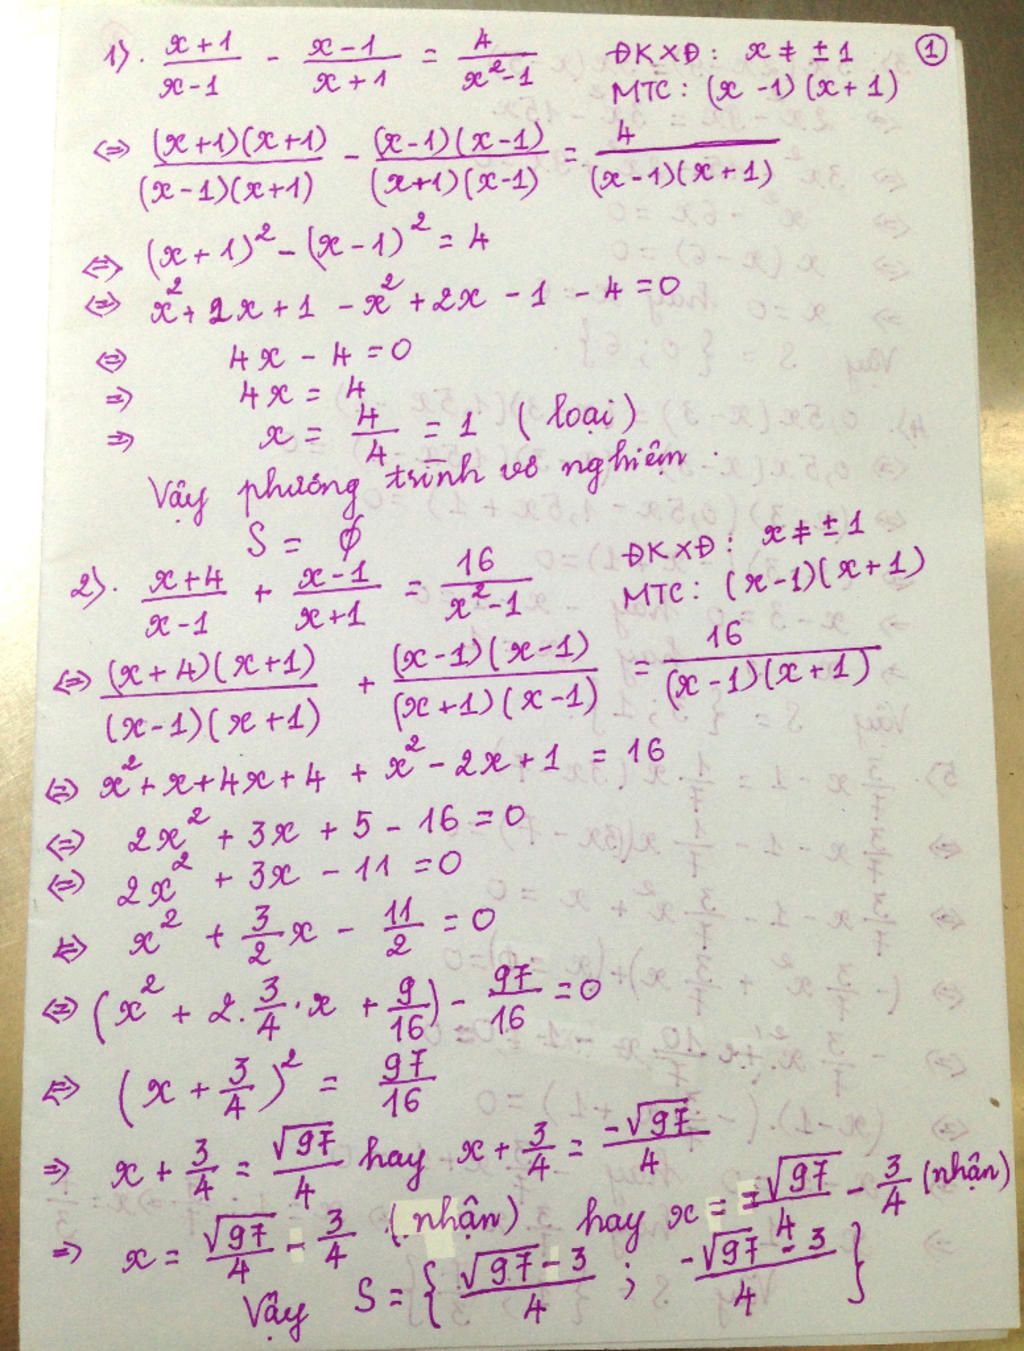 1). (x+1)/(x-1) - (x-1)/(x+1) = 4/(x²-1)   ĐKXĐ: x ≠ ± 1   ①
MTC: (x-1)(x+1)
⇔ (x+1)(x+1)/(x-1)(x+1) - (x-1)(x-1)/(x+1)(x-1) = 4/(x-1)(x+1)
⇔ (x+1)² - (x-1)² = 4
⇔ x² + 2x + 1 - x² + 2x - 1 - 4 = 0
⇔ 4x - 4 = 0
⇒ 4x = 4
⇒ x = 4/4 = 1 (loại)
Vậy phương trình vô nghiệm.
S = ∅
2). (x+4)/(x-1) + (x-1)/(x+1) = 16/(x²-1)   ĐKXĐ: x ≠ ± 1
MTC: (x-1)(x+1)
⇔ (x+4)(x+1)/(x-1)(x+1) + (x-1)(x-1)/(x+1)(x-1) = 16/(x-1)(x+1)
⇔ x² + x + 4x + 4 + x² - 2x + 1 = 16
⇔ 2x² + 3x + 5 - 16 = 0
⇔ 2x² + 3x - 11 = 0
⇔ x² + 3/2 x - 11/2 = 0
⇔ (x² + 2. 3/4 . x + 9/16) - 97/16 = 0
⇔ (x + 3/4)² = 97/16
⇒ x + 3/4 = √97/4 hay x + 3/4 = -√97/4
⇒ x = √97/4 - 3/4 (nhận) hay x = -√97/4 - 3/4 (nhận)
Vậy S = { (√97 - 3)/4 ; (-√97 - 3)/4 }